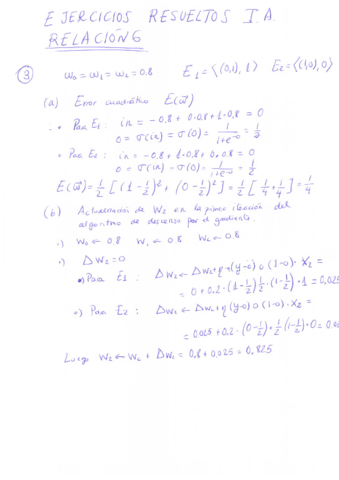 EJERCICIOS RESUELTOS I.A.
RELACIÓN 6
③ w₀ = w₁ = w₂ = 0.8 E₁ = ⟨(0,1), 1⟩ E₂ = ⟨(1,0), 0⟩
(a) Error cuadrático E(w⃗)
• Para E₁: in = -0.8 + 0·0.8 + 1·0.8 = 0
o = σ(in) = σ(0) = 1/(1+e⁻⁰) = 1/2
• Para E₂: in = -0.8 + 1·0.8 + 0·0.8 = 0
o = σ(in) = σ(0) = 1/(1+e⁻⁰) = 1/2
E(w⃗) = 1/2 [(1 - 1/2)² + (0 - 1/2)²] = 1/2 [1/4 + 1/4] = 1/4
(b) Actualización de W₂ en la primera iteración del
algoritmo de descenso por el gradiente.
•) W₀ ← 0.8 W₁ ← 0.8 W₂ ← 0.8
•) ΔW₂ = 0
•) Para E₁: ΔW₂ ← ΔW₂ + η (y-o) o (1-o) · X₂ =
= 0 + 0.2 · (1 - 1/2) 1/2 · (1 - 1/2) · 1 = 0.025
•) Para E₂: ΔW₂ ← ΔW₂ + η (y-o) o (1-o) · X₂ =
= 0.025 + 0.2 · (0 - 1/2) · 1/2 (1 - 1/2) · 0 = 0.0
Luego W₂ ← W₂ + ΔW₂ = 0.8 + 0.025 = 0.825